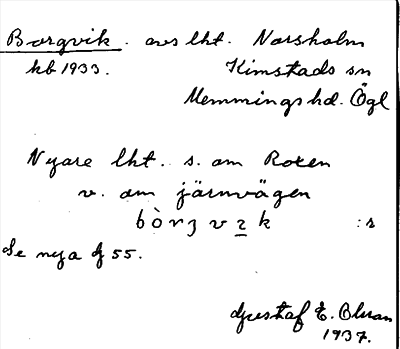 Borgvik. avs lht. Norsholm
kb 1933. Kimstads sn
Memmings hd. Ögl
Nyare lht. s. om Roxen
v. om järnvägen
:s
Se nya g 55.
Gustaf E.
1937.